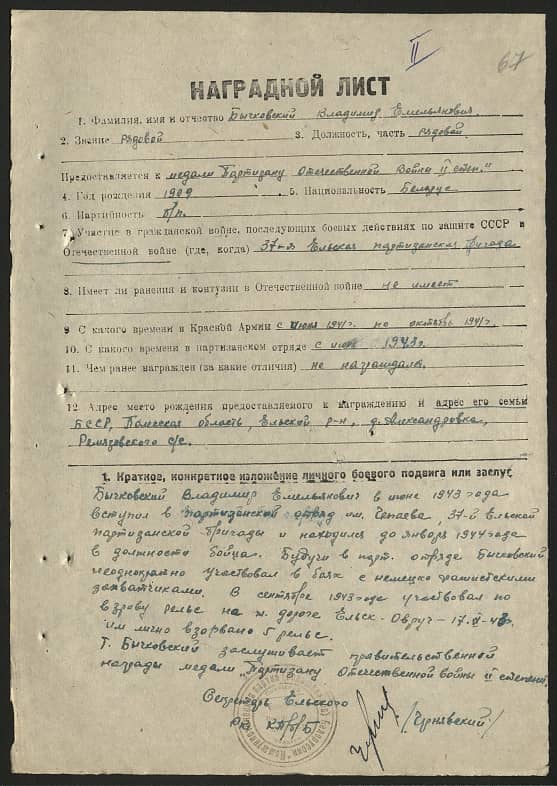 II
67
НАГРАДНОЙ ЛИСТ
1. Фамилия, имя и отчество Бычковский Владимир Емельянович.
2. Звание рядовой 3. Должность, часть рядовой.
Предоставляется к медали Партизану Отечественной Войны II степ."
4. Год рождения 1909 5. Национальность Беларус
6. Партийность б/п.
7. Участие в гражданской войне, последующих боевых действиях по защите СССР в
Отечественной войне (где, когда) 37-я Ельская партизанская бригада
8. Имеет ли ранения и контузии в Отечественной войне не имеет
9 С какого времени в Красной Армии с июля 1941г. по октябрь 1941г.
10. С какого времени в партизанском отряде с июня 1943г.
11. Чем ранее награжден (за какие отличия) не награждался.
12. Адрес место рождения предоставляемого к награждению и адрес его семьи
БССР, Полесская область, Ельский р-н, д. Александровка,
Ремезовского с/с.
1. Краткое, конкретное изложение личного боевого подвига или заслуг
Бычковский Владимир Емельянович в июне 1943 года
вступил в партизанский отряд им. Чапаева, 37-й Ельской
партизанской бригады и находился до января 1944 года
в должности бойца. Будучи в парт. отряде Бычковский
неоднократно участвовал в боях с немецко-фашистскими
захватчиками. В сентябре 1943 года участвовал по
взрову рельс на ж. дороге Ельск-Овруч-17. 43г.
им лично взорвано 5 рельс.
Т. Бычковский заслуживает правительственной
награды медали „Партизану Отечественной войны II степени".
Секретарь Ельского
РК КП/б/Б /Чернявский/